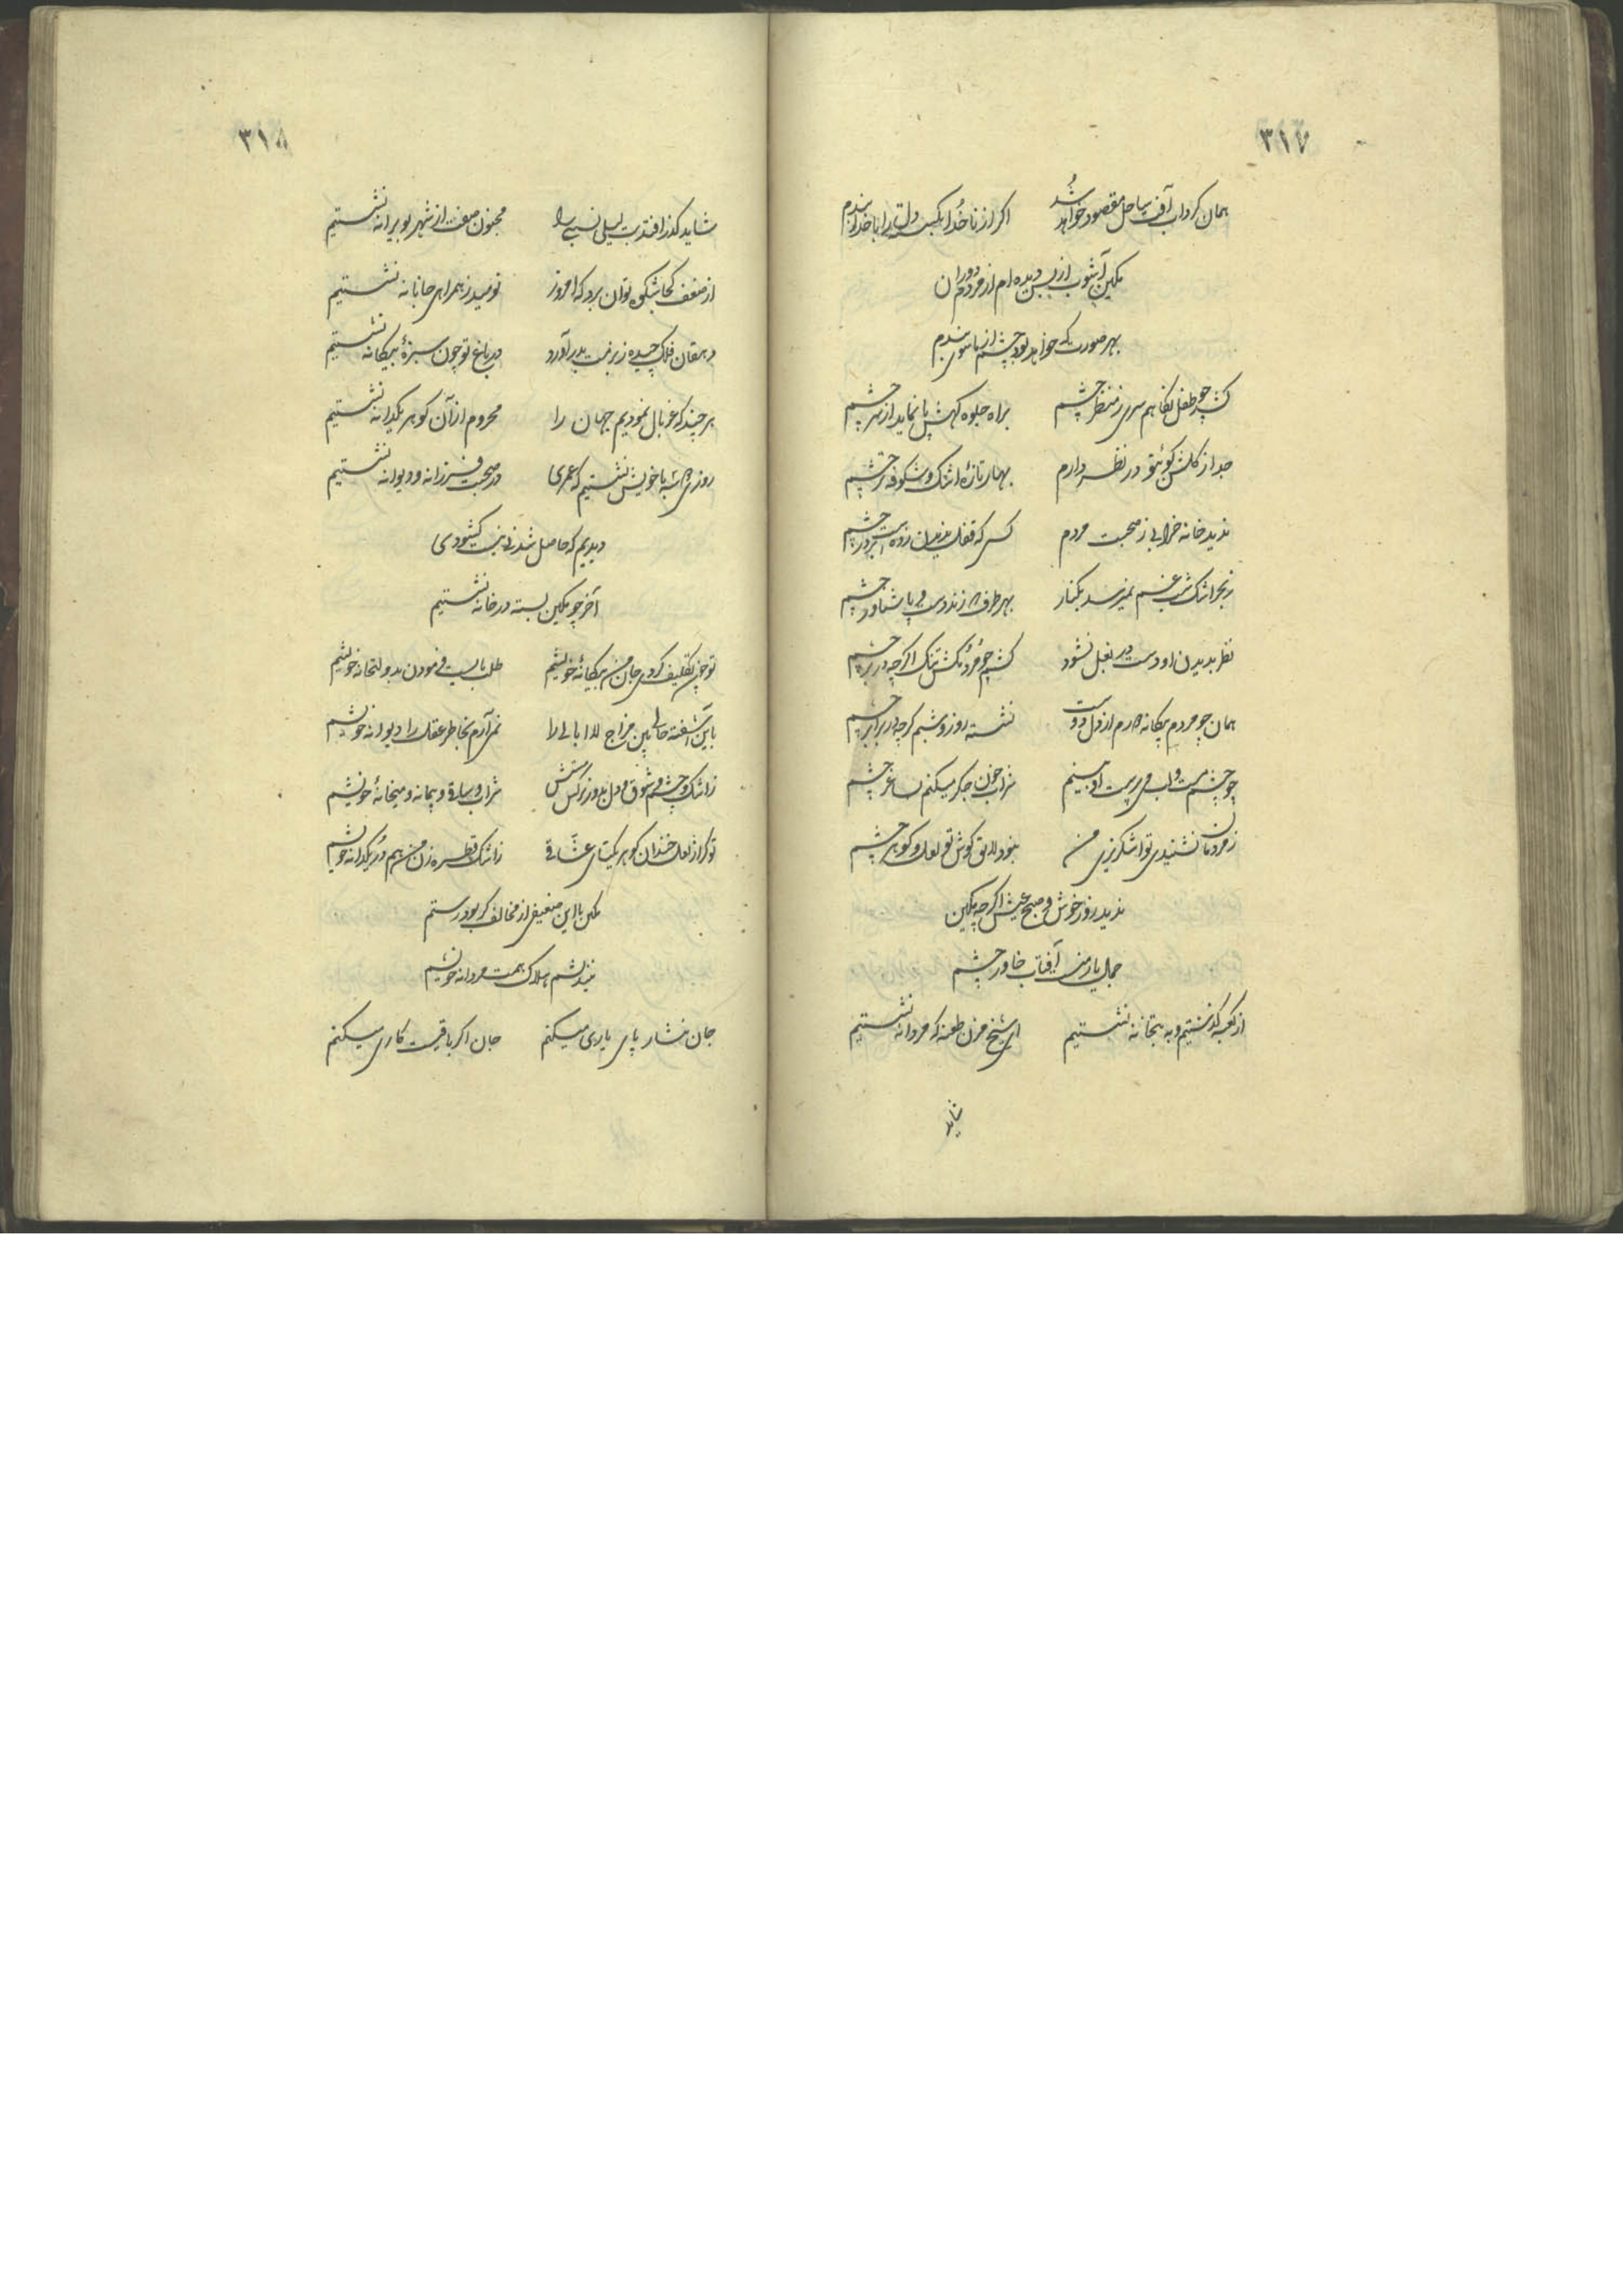 ٣١٧
همان کرداب آفت ساحل مقصود خواهد شد اکر از ناخدا بکسسته دل را با خدا بندم
مکین آشوب از بس دیده ام از مردم دوران
بهر صورت که خواهد بود چشم از ماسوی بندم
کشد چو طفل نکاهم سری ز منظر چشم براه جلوه کهش پا نماید از سر چشم
جدا از کلشن کوئیتو در نظر دارم بهار تازهٔ اشک و شکوفه تر چشم
ندید خانه خرابی ز صحبت مردم کسی که قفل ندیدن زده است بر در چشم
ز بحر اشک شب غم نمیرسد بکنار بهر طرف زند دست و پا شناور چشم
نظر بدیدن او دست در بغل نشود کشم چو مردمکش تنک اکرچه در بر چشم
همان چو مردم بیکانه دارم از دل دوست نشسته روز و شبم کرچه در برابر چشم
چو چشم مست و لب می پرست او بینم شراب خون جکر میکنم بساغر چشم
ز مردمان نشنیدی تو اشکریزی من نبود لایق کوش تو لعل و کوهر چشم
ندید روز خوش و صبح عیش اکرچه مکین
جمال یار منست آفتاب خاور چشم
از کعبه کذشتیم و به بتخانه نشستیم ای شیخ مزن طعنه که مردانه نشستیم
شاید
٣١٨
شاید کذر افتد بت لیلی نسبی را مجنون صفت از شهر بویرانه نشستیم
از ضعف کجا شکوه توان برد که امروز نومید ز همراهی جانانه نشستیم
دهقان فلک چیده ز بزمت بدر آورد در باغ تو چون سبزهٔ بیکانه نشستیم
هر چند که غربال نمودیم جهان را محروم از آن کوهر یکدانه نشستیم
روزی دو سه با خویش نشستیم که عمری در صحبت فرزانه و دیوانه نشستیم
دیدیم که حاصل نشد از نیت کشودی
آخر چو مکین بسته در خانه نشستیم
تو چون تکلیف کردی جان من بیکانهٔ خویشم طلب بایست فرمودن بدولتخانهٔ خویشم
باین آشفته حالی باین مزاج لاابالی را نمی آرم بخاطر عقل را دیوانهٔ خویشم
ز اشک و چشم و شوق و دل بدور نرکس مستش شراب و باده و پیمانه و میخانهٔ خویشم
تو کر از لعل خندان کوهر یکتای عشاقی ز اشک قطره زن من هم در یکدانه خویشم
مکین با این ضعیفی از مخالف کر بود رستم
نیندیشم هلاک همت مردانه خویشم
جان نثار پای یاری میکنم جان اکر باقیست کاری میکنم